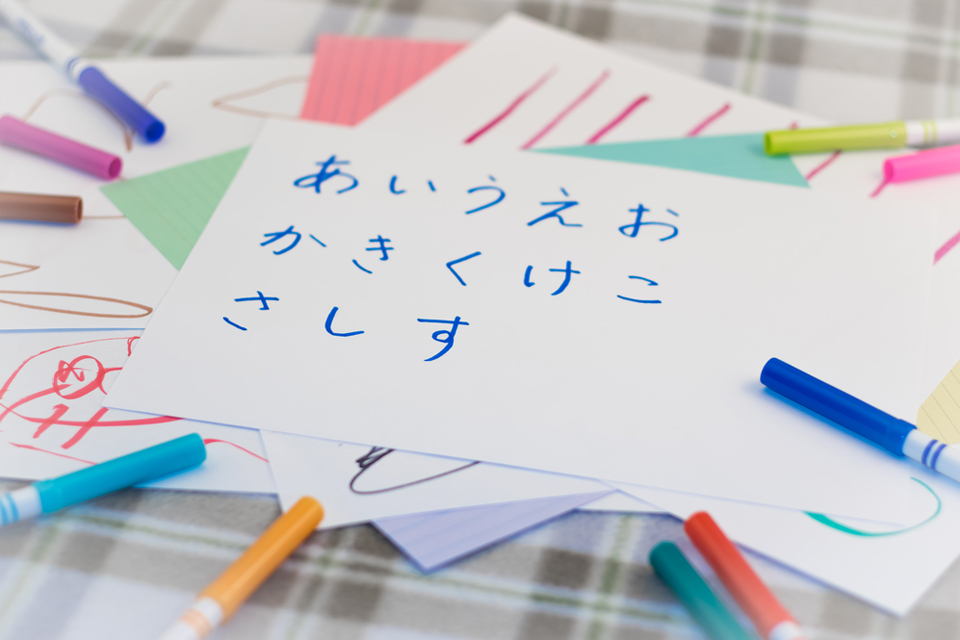 あいうえお
かきくけこ
さしす